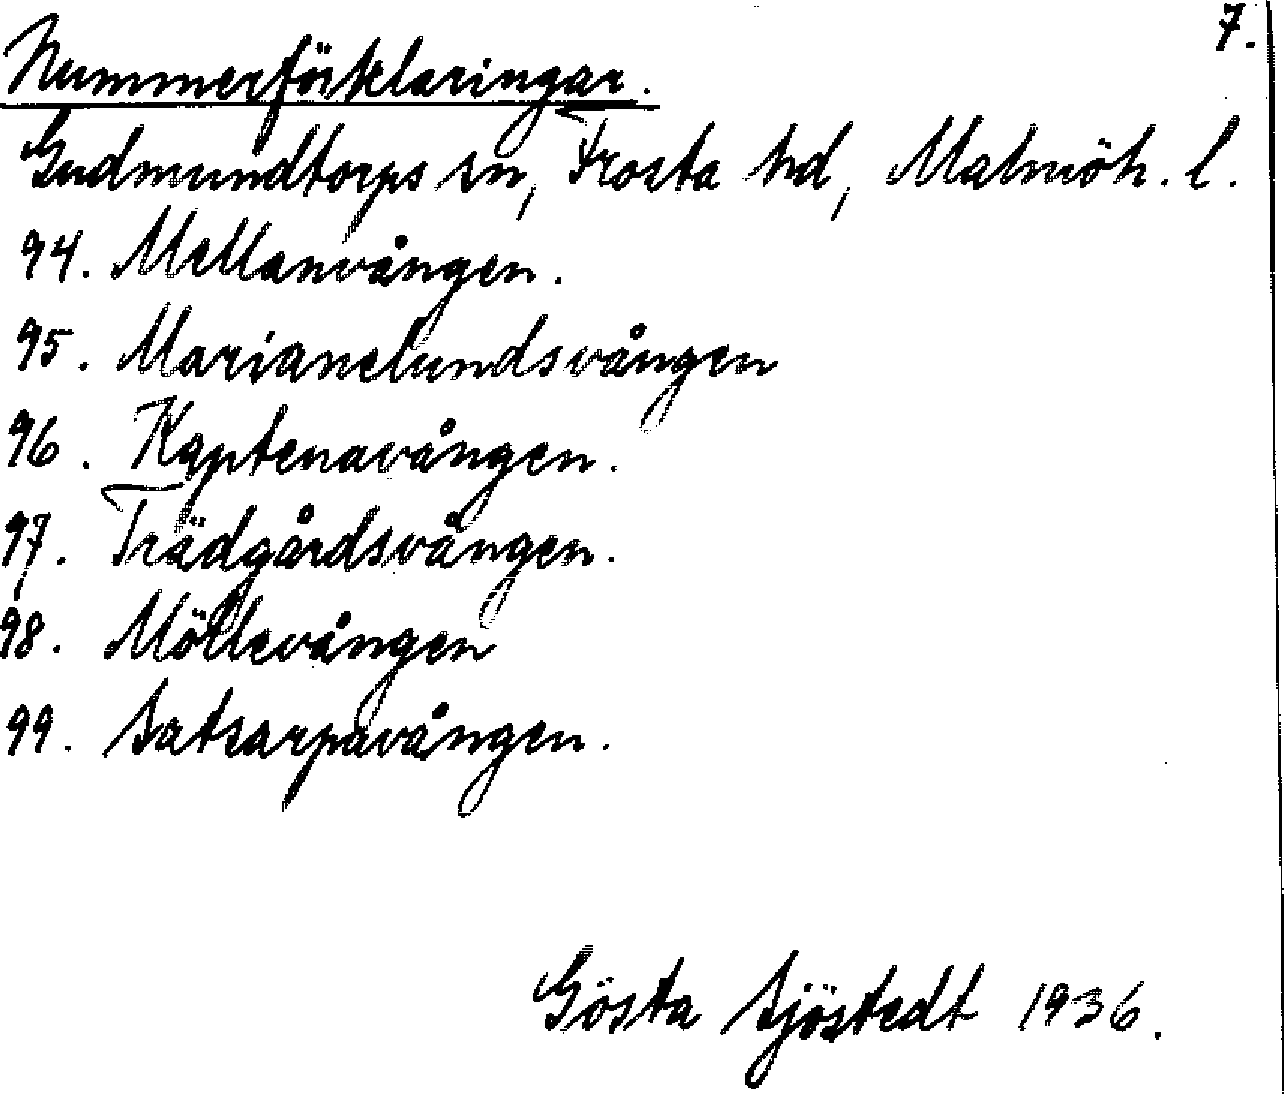 7.
Nummerförklaringar.
Gudmundtorps sn, Frosta hd, Malmöh. l.
94. Mellanvången.
95. Marianelundsvången
96. Kaptenavången.
97. Trädgårdsvången.
98. Möllevången
99. Satsarpavången.
Gösta Sjöstedt 1936.